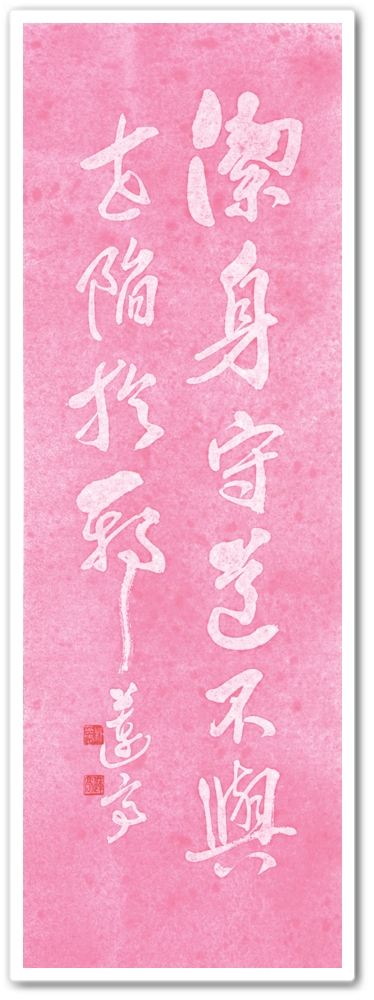 潔身守道不與
世陷於邪
蓮亭